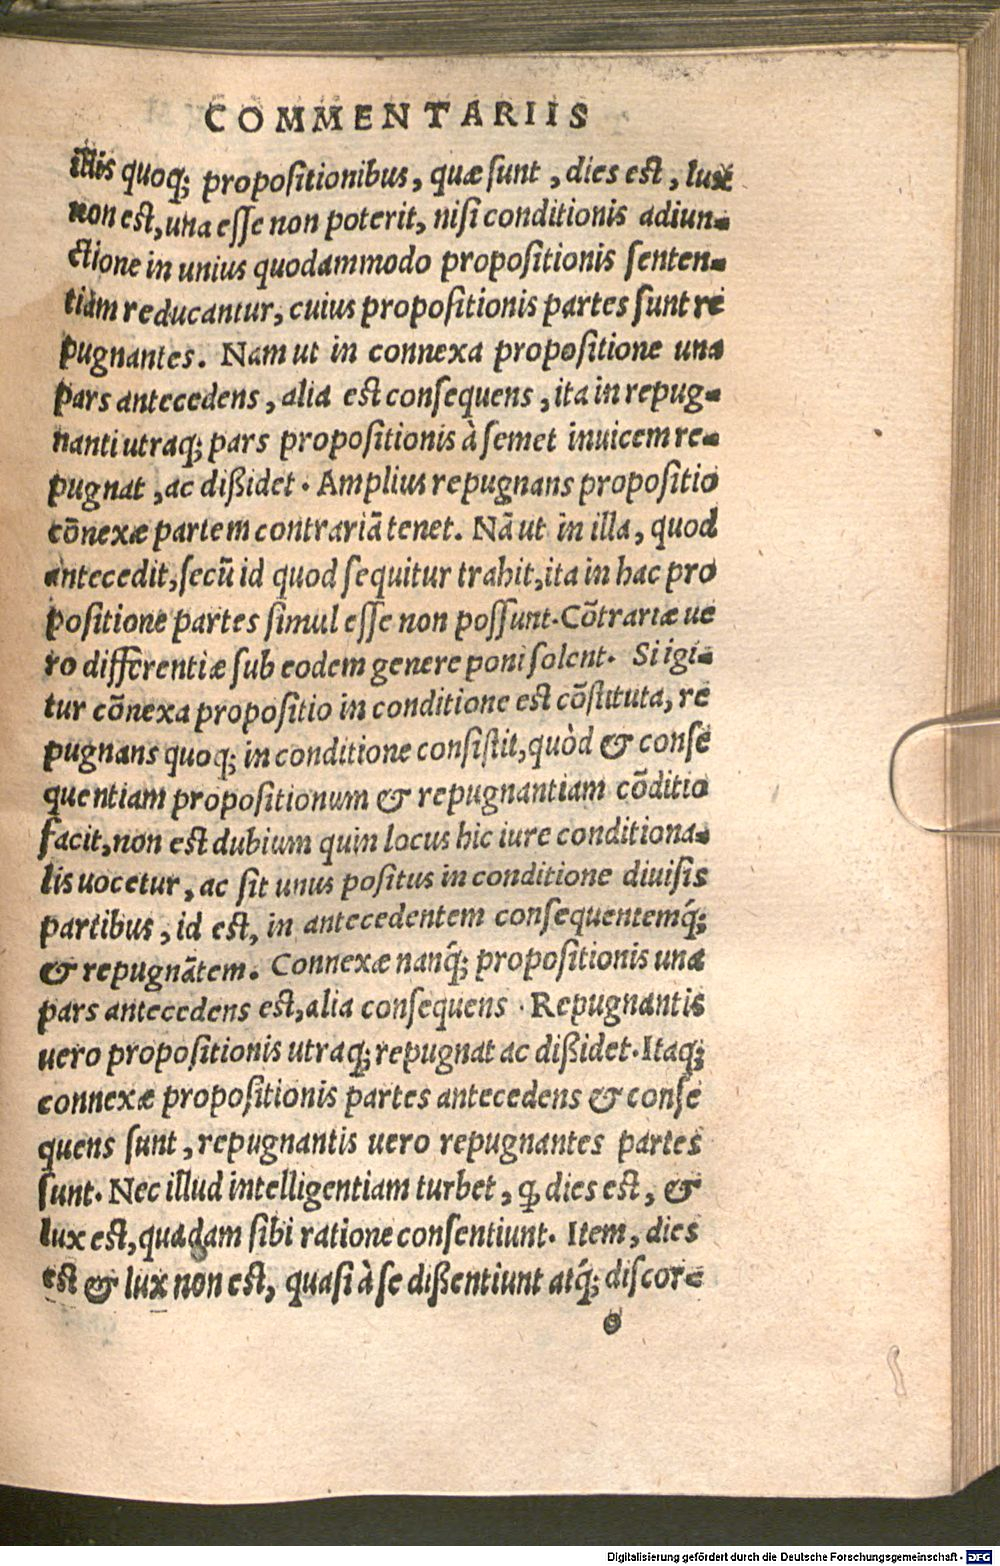 COMMENTARIIS
illis quoq; propositionibus, quæ sunt, dies est, lux
non est, una esse non poterit, nisi conditionis adiun-
ctione in unius quodammodo propositionis senten-
tiam reducantur, cuius propositionis partes sunt re
pugnantes. Nam ut in connexa propositione una
pars antecedens, alia est consequens, ita in repug-
nanti utraq; pars propositionis à semet inuicem re-
pugnat, ac dißidet. Amplius repugnans propositio
cōnexæ partem contrariā tenet. Nā ut in illa, quod
antecedit, secū id quod sequitur trahit, ita in hac pro
positione partes simul esse non possunt. Cōtrariæ ue
ro differentiæ sub eodem genere poni solent. Si igi-
tur cōnexa propositio in conditione est cōstituta, re
pugnans quoq; in conditione consistit, quòd & conse
quentiam propositionum & repugnantiam cōditio
facit, non est dubium quin locus hic iure conditiona-
lis uocetur, ac sit unus positus in conditione diuisis
partibus, id est, in antecedentem consequentemq́;
& repugnātem. Connexæ nanq́; propositionis una
pars antecedens est, alia consequens. Repugnantis
uero propositionis utraq; repugnat ac dißidet. Itaq;
connexæ propositionis partes antecedens & conse
quens sunt, repugnantis uero repugnantes partes
sunt. Nec illud intelligentiam turbet, ꝙ dies est, &
lux est, quadam sibi ratione consentiunt. Item, dies
est & lux non est, quasi à se dißentiunt atq́; discor-
Digitalisierung gefördert durch die Deutsche Forschungsgemeinschaft - DFG